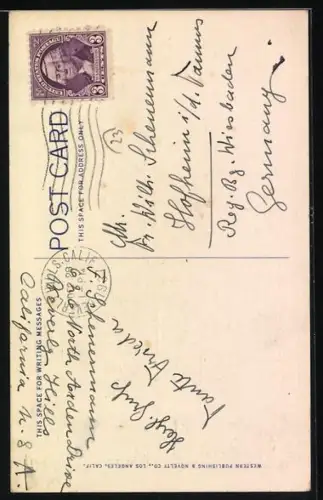 POST CARD
THIS SPACE FOR ADDRESS ONLY
3
3
(23)
Hr.
Dr. Wilh. Schenemann
Hofheim i/d. Taunus
Reg. Bz. Wiesbaden
Germany
THIS SPACE FOR WRITING MESSAGES
Herzl. Gruß
Tante Frieda
F. Schenemann
North Arden Drive
Beverly Hills
California U. S. A.
CALIF
WESTERN PUBLISHING & NOVELTY CO., LOS ANGELES, CALIF.